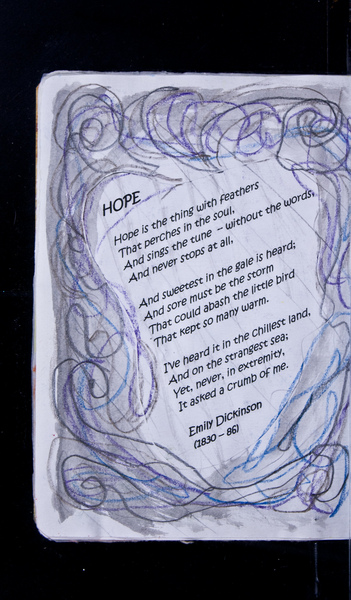 HOPE
Hope is the thing with feathers
That perches in the soul,
And sings the tune – without the words,
And never stops at all,
And sweetest in the gale is heard;
And sore must be the storm
That could abash the little bird
That kept so many warm.
I've heard it in the chillest land,
And on the strangest sea;
Yet, never, in extremity,
It asked a crumb of me.
Emily Dickinson
(1830 – 86)